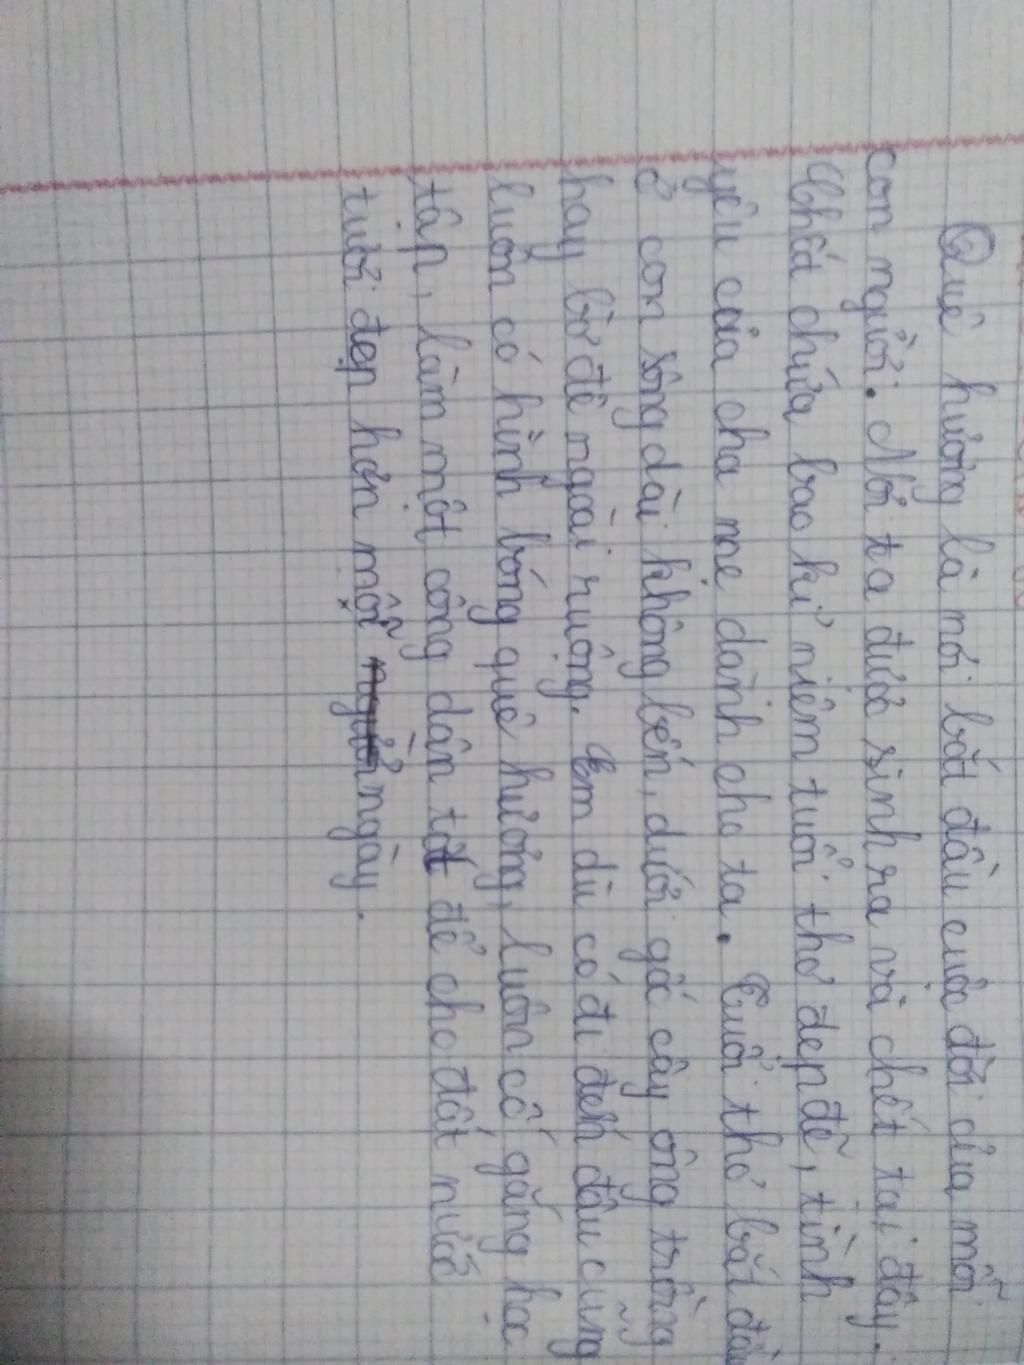 Quê hương là nơi bắt đầu cuộc đời của mỗi
con người. Nơi ta được sinh ra và chết tại đây.
Chứa chứa bao kỉ niệm tuổi thơ đẹp đẽ, tình
yêu của cha mẹ dành cho ta. Tuổi thơ bắt đầu
ở con sông dài không bến, dưới gốc cây ông trồng
hay bờ đê ngoài ruộng. Em dù có đi đến đâu cũng
luôn có hình bóng quê hương, luôn cố gắng học
tập, làm một công dân tốt để cho đất nước
tươi đẹp hơn mỗi ngày.